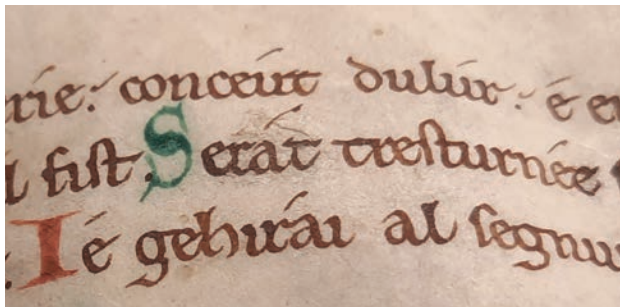 rie: conceut dulur: é en
l fist. Serát tresturnée
Ié gehirái al segnu